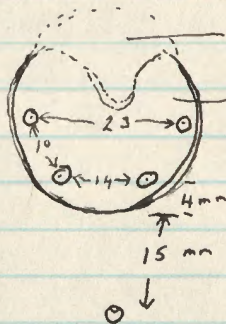 23
10
14
4mm
15 mm